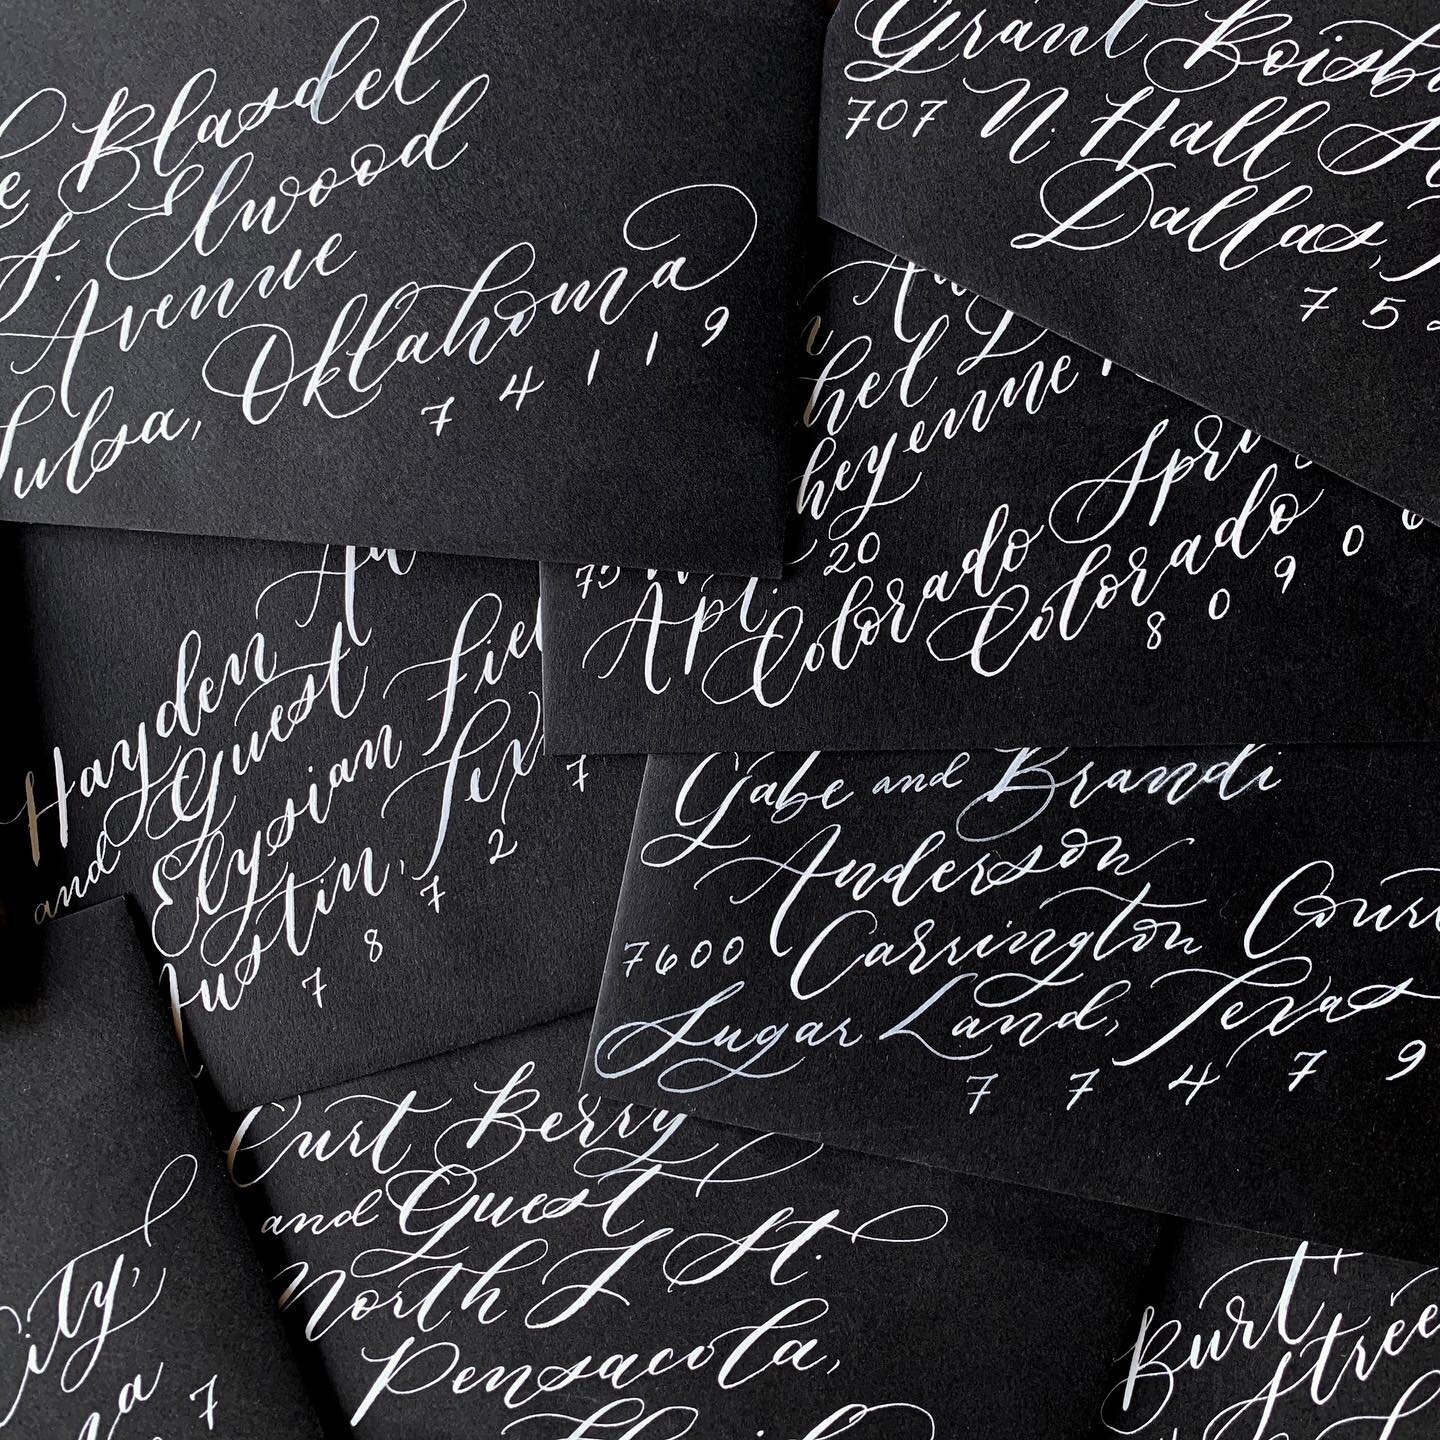 Blasdel
S. Elwood
Avenue
Tulsa, Oklahoma
7 4 1 1 9
Grant
707 N. Hall
Dallas,
7 5
Cheyenne
Apt. 20
Colorado
Colorado
8 0 9 0
Hayden
and Guest
Elysian
Austin,
7 8 7 2 7
Gabe and Brandi
Anderson
7600 Carrington
Sugar Land, Texas
7 7 4 7 9
Curt Berry
and Guest
North L St.
Pensacola,
City,
7
Burt